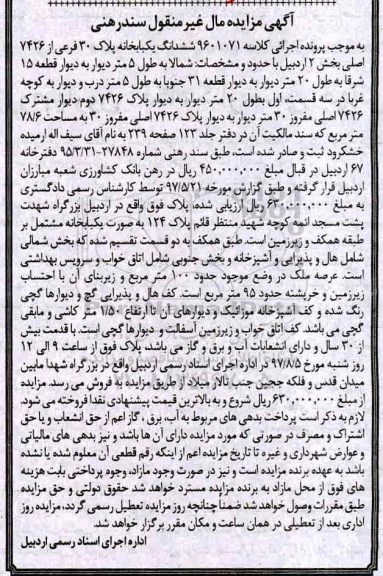 آگهی مزایده مال غیر منقول سند رهنی
به موجب پرونده اجرائی کلاسه ۹۶۰۱۰۷۱ ششدانگ یکبابخانه پلاک ۳۰ فرعی از ۷۴۲۶
اصلی بخش ۲ اردبیل با حدود و مشخصات: شمالا به طول ۵ متر دیوار به دیوار قطعه ۱۵
شرقا به طول ۲۰ متر دیوار به دیوار قطعه ۳۱ جنوبا به طول ۵ متر درب و دیوار به کوچه
غربا در سه قسمت، اول بطول ۲۰ متر دیوار به دیوار پلاک ۷۴۲۶ دوم دیوار مشترک
۷۴۲۶ اصلی مفروز ۳۰ متر دیوار به دیوار پلاک ۷۴۲۶ اصلی مفروز ۳۰ به مساحت ۷۸/۶
متر مربع که سند مالکیت آن در دفتر جلد ۱۲۳ صفحه ۲۳۹ به نام آقای سیف اله ارمیده
خشکرود ثبت و صادر شده است، طبق سند رهنی شماره ۲۷۸۴۸-۹۵/۳/۳۱ دفترخانه
۶۷ اردبیل در قبال مبلغ ۴۵۰,۰۰۰,۰۰۰ ریال در رهن بانک کشاورزی شعبه مبارزان
اردبیل قرار گرفته و طبق گزارش مورخه ۹۷/۵/۲۱ توسط کارشناس رسمی دادگستری
به مبلغ ۶۳۰,۰۰۰,۰۰۰ ریال ارزیابی شده، پلاک فوق واقع در اردبیل بزرگراه شهدت
پشت مسجد ائمه کوچه شهید منتظر قائم پلاک ۱۲۴ به صورت یکبابخانه مشتمل بر
طبقه همکف و زیرزمین است. طبق همکف به دو قسمت تقسیم شده که بخش شمالی
شامل هال و پذیرایی و آشپزخانه و بخش جنوبی شامل اتاق خواب و سرویس بهداشتی
است. عرصه ملک در وضع موجود حدود ۱۰۰ متر مربع و زیربنای آن با احتساب
زیرزمین و خرپشته حدود ۹۵ متر مربع است. کف هال و پذیرایی گچ و دیوارها گچی
رنگ شده و کف آشپزخانه موزائیک و دیوارهای آن تا ارتفاع ۱/۵۰ متر کاشی و مابقی
گچی می باشد. کف اتاق خواب و زیرزمین آسفالت و دیوارها گچی است. با قدمت بیش
از ۳۰ سال و دارای انشعابات آب و برق و گاز می باشد، پلاک فوق از ساعت ۹ الی ۱۲
روز شنبه مورخ ۹۷/۸/۵ در اداره اجرای اسناد رسمی اردبیل واقع در بزرگراه شهدا مابین
میدان قدس و فلکه ججین جنب تالار میلاد از طریق مزایده به فروش می رسد. مزایده
از مبلغ ۶۳۰,۰۰۰,۰۰۰ ریال شروع و به بالاترین قیمت پیشنهادی نقدا فروخته می شود.
لازم به ذکر است پرداخت بدهی های مربوط به آب، برق، گاز اعم از حق انشعاب و یا حق
اشتراک و مصرف در صورتی که مورد مزایده دارای آن ها باشد و نیز بدهی های مالیاتی
و عوارض شهرداری و غیره تا تاریخ مزایده اعم از اینکه رقم قطعی آن معلوم شده یا نشده
باشد به عهده برنده مزایده است و نیز در صورت وجود مازاد، وجوه پرداختی بابت هزینه
های فوق از محل مازاد به برنده مزایده مسترد خواهد شد حقوق دولتی و حق مزایده
طبق مقررات وصول خواهد شد ضمنا چنانچه روز مزایده تعطیل رسمی گردد، مزایده روز
اداری بعد از تعطیلی در همان ساعت و مکان مقرر برگزار خواهد شد.
اداره اجرای اسناد رسمی اردبیل